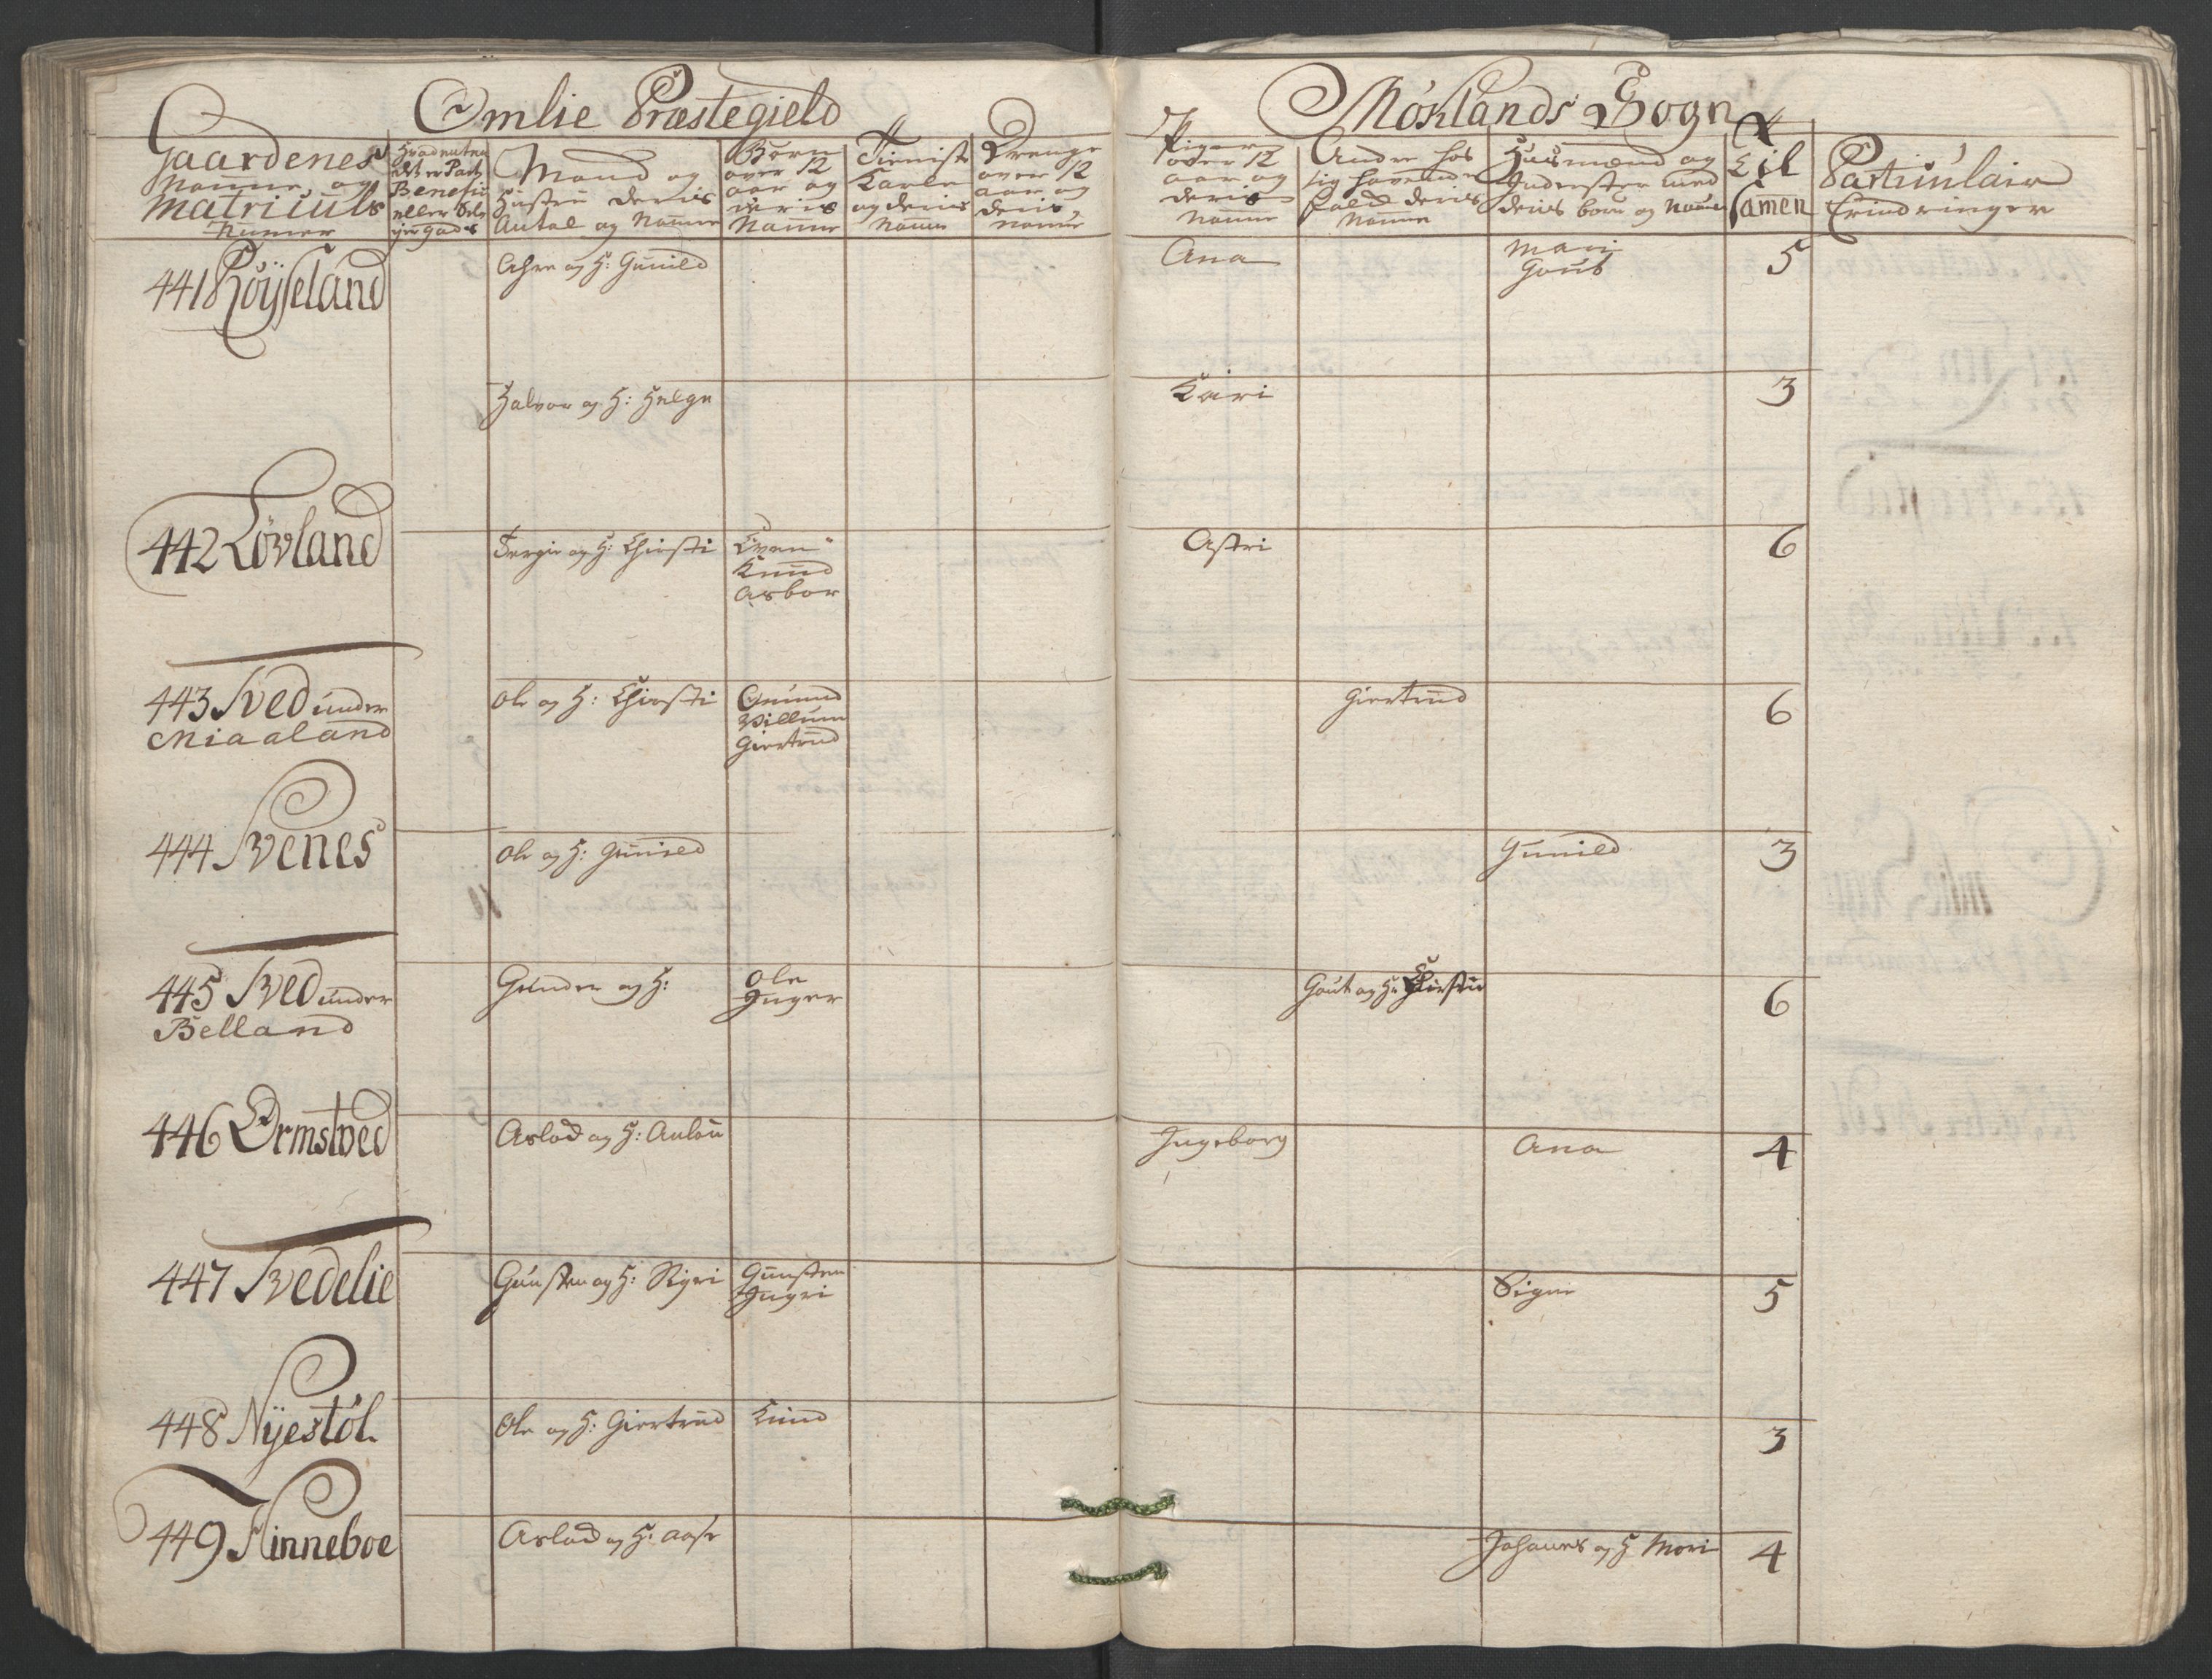 Omlie Præstegield
Møklands Sogn
Gaardenes
Nafne og
Matriculs
Numer
Hvad enten
det er Part
Benefis
eller Sels
yer gods
Mand og
Hustru deris
Antal og Nafne
Børn
over 12
aar og
deris
Nafne
Tieniste
Karle
og deris
Nafne
Drenge
over 12
aar og
deris
Nafne
Piger
over 12
aar og
deris
Nafne
Andre hos
sig havende
Folk deris
Nafne
Husmænd og
Inderster med
deris børn og Nafne
Til
samen
Particulair
Erindringer
441 Röÿseland
og H: Gunild
Ana
Mari
Gout
5
Halvor og H: Helge
Kari
3
442 Lövland
Tergie og H: Chirsti
Even
Knud
Asbor
Astri
6
443 Tved under
Miaaland
Ole og H: Chirsti
Omund
Villum
Giertrud
Giertrud
6
444 Tvenes
Ole og H: Gunild
Gunild
3
445 Tved under
Belland
Gunder og H:
Ole
Inger
Gout og H: Chirstie
6
446 Ormstved
Aslad og H: Anlou
Ingeborg
Ana
4
447 Tvedelie
Gunsten og H: Sigri
Gunsten
Ingri
Signe
5
448 Nÿestöl
Ole og H: Giertrud
Knud
3
449 Hinneboe
Aslad og H: Aase
Johannes og H Mari
4